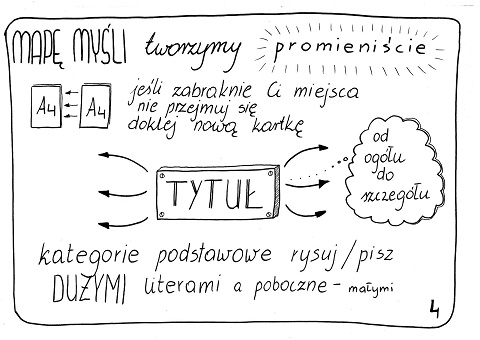 MAPĘ MYŚLI tworzymy promieniście
A4 A4
jeśli zabraknie Ci miejsca
nie przejmuj się
doklej nową kartkę
TYTUŁ
od
ogółu
do
szczegółu
kategorie podstawowe rysuj/pisz
DUŻYMI literami a poboczne - małymi
4